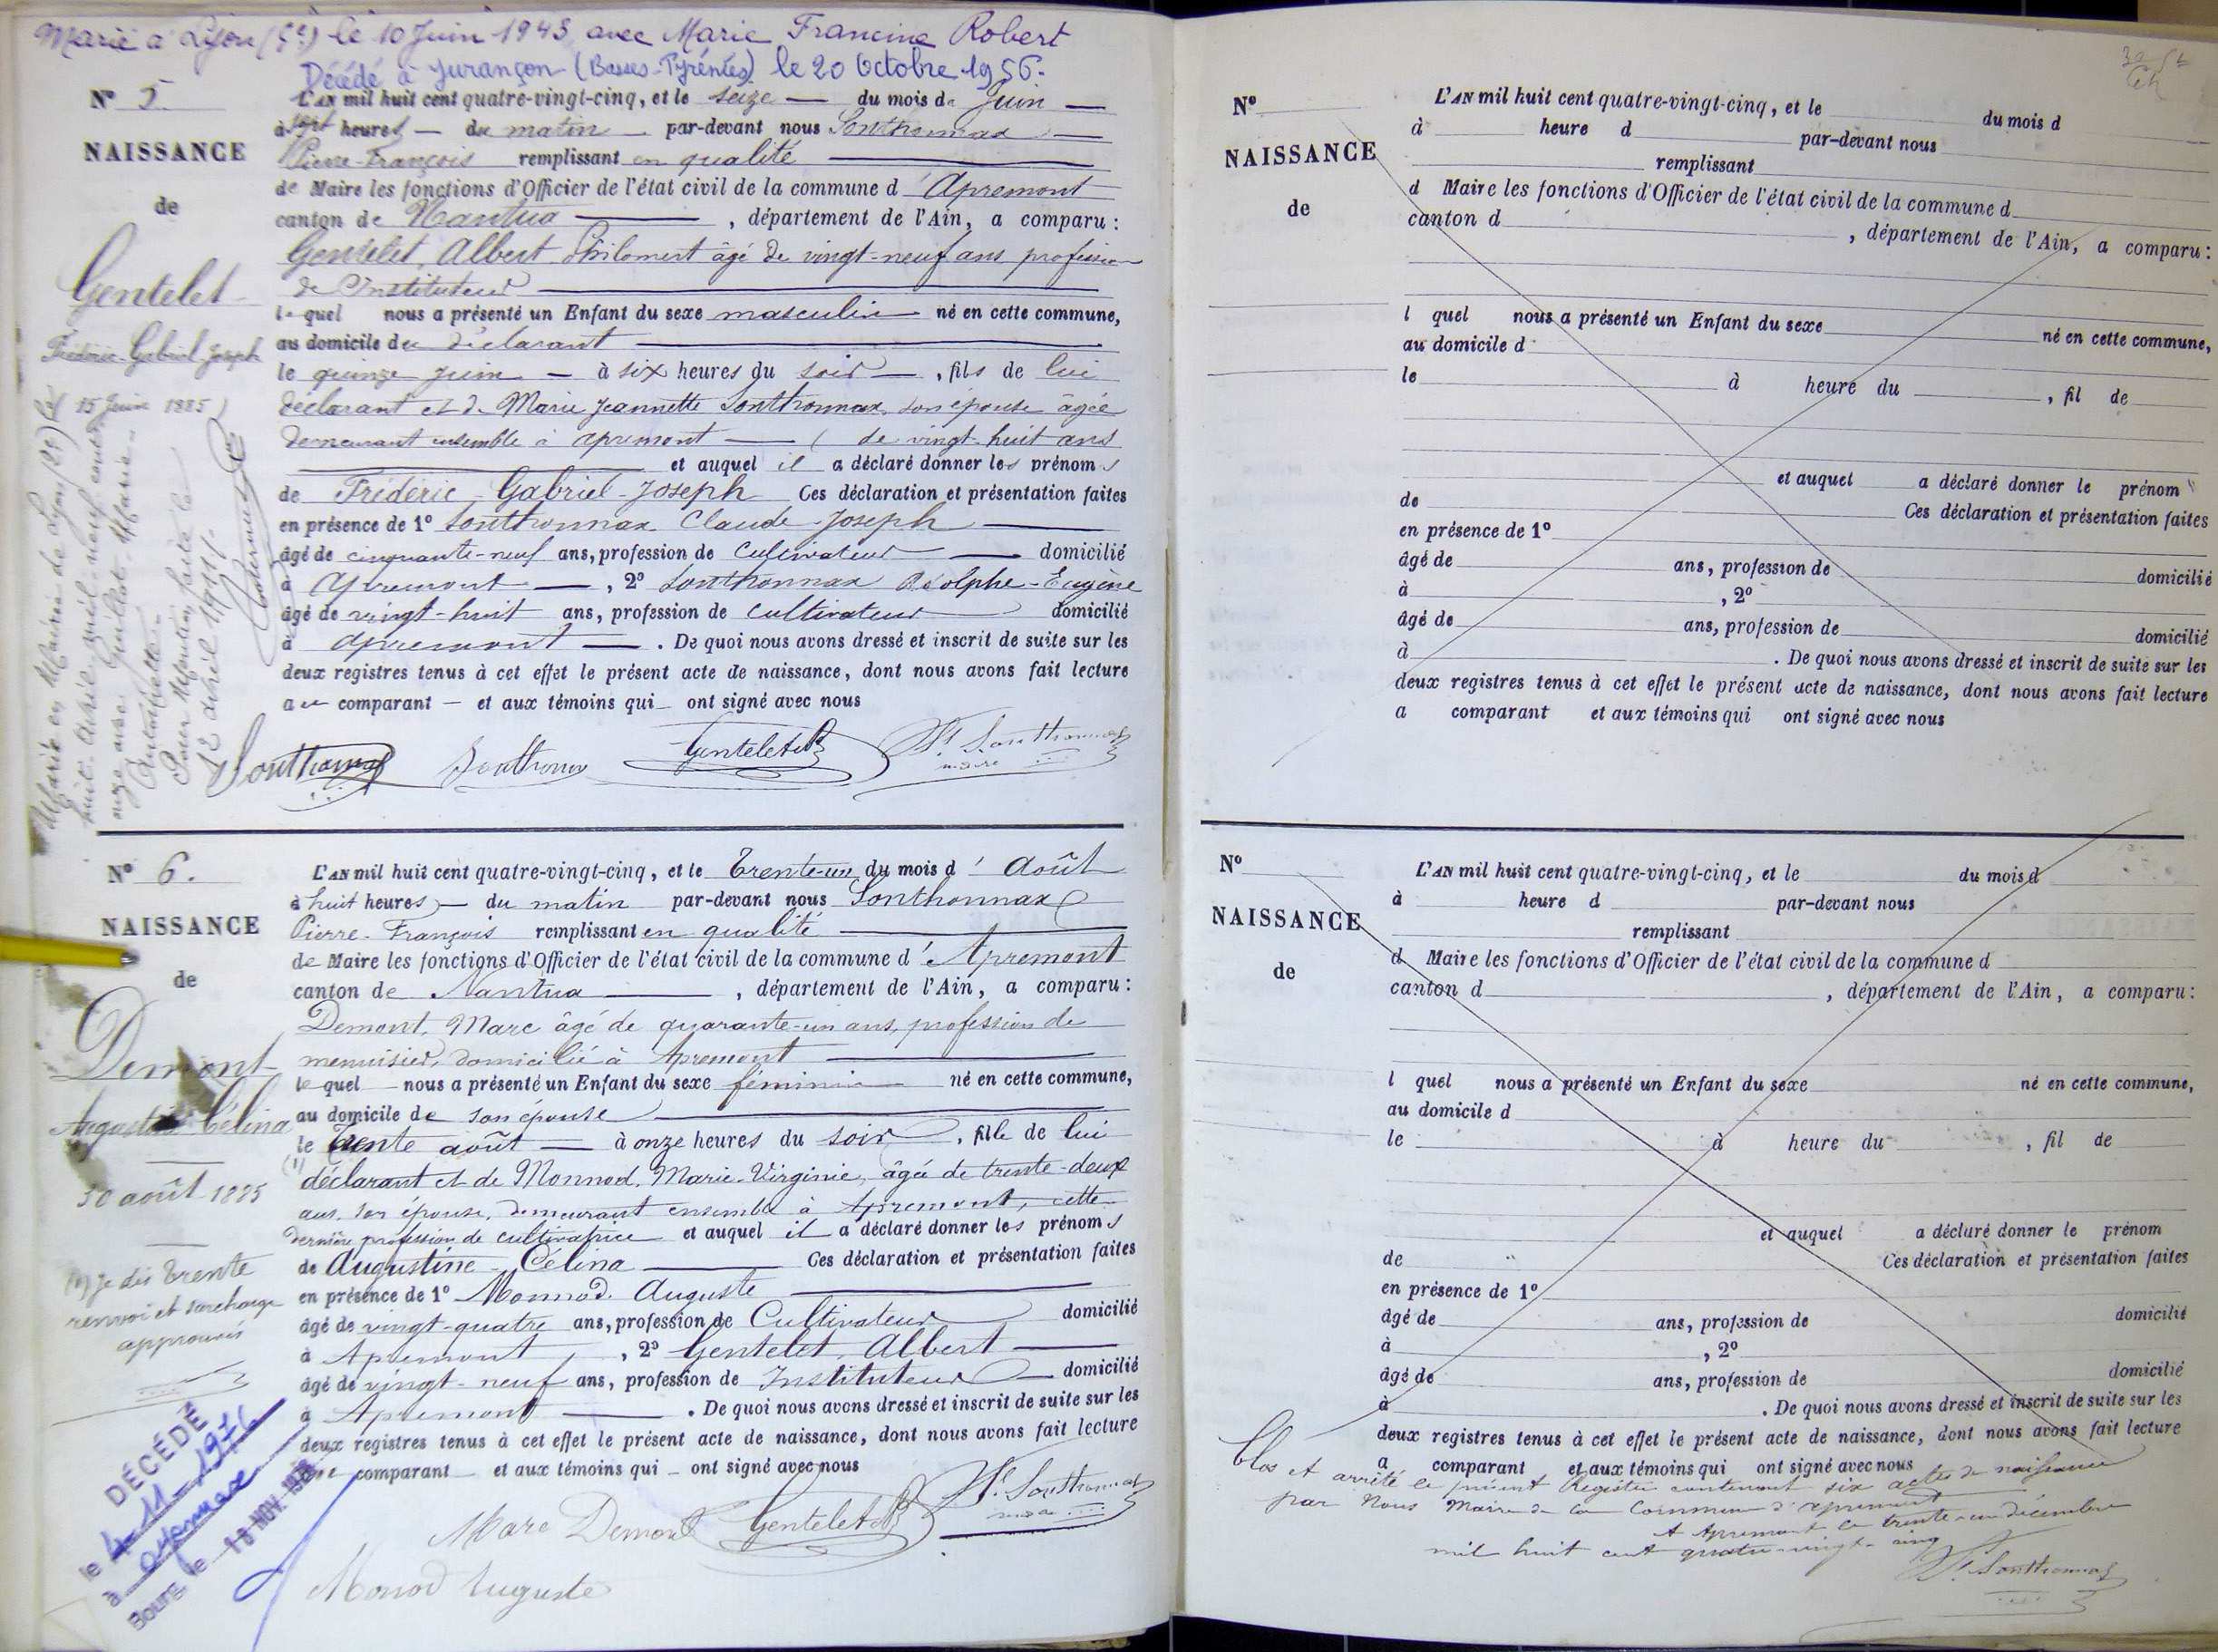 Marié à Lyon (5e) le 10 Juin 1943 avec Marie Francine Robert
Décédé à Jurançon (Basses-Pyrénées) le 20 Octobre 1956.
N° 5.
NAISSANCE
de
Gentelet
Frédéric-Gabriel-Joseph
15 Juin 1885
Marié en Mairie de Lyon (2e) le
huit Avril mil-neuf-cent
onze avec Guillot Marie
Antoinette.
Pour Mention faite le
12 avril 1911.
L'AN mil huit cent quatre-vingt-cinq, et le seize du mois de Juin
à sept heures du matin par-devant nous Sonthonnax
Pierre-François remplissant en qualité
de Maire les fonctions d'Officier de l'état civil de la commune d'Apremont
canton de Nantua, département de l'Ain, a comparu :
Gentelet, Albert Philomert âgé de vingt-neuf ans profession
de Instituteur
lequel nous a présenté un Enfant du sexe masculin né en cette commune,
au domicile du déclarant
le quinze juin à six heures du soir, fils de lui
déclarant et de Marie Jeannette Sonthonnax, son épouse âgée
demeurant ensemble à apremont ( de vingt-huit ans
et auquel il a déclaré donner les prénoms
de Frédéric-Gabriel-Joseph Ces déclaration et présentation faites
en présence de 1° Sonthonnax Claude-Joseph
âgé de cinquante-neuf ans, profession de Cultivateur domicilié
à Apremont, 2° Sonthonnax Adolphe-Eugène
âgé de vingt-huit ans, profession de cultivateur domicilié
à apremont. De quoi nous avons dressé et inscrit de suite sur les
deux registres tenus à cet effet le présent acte de naissance, dont nous avons fait lecture
au comparant et aux témoins qui ont signé avec nous
Sonthonnax Sonthonnax Gentelet Alb Sonthonnax
maire
N° 6.
NAISSANCE
de
Demont
Augustine Célina
30 août 1885
(1) Je dis Trente
renvoi et surcharge
approuvés
L'AN mil huit cent quatre-vingt-cinq, et le Trente-un du mois d'Août
à huit heures du matin par-devant nous Sonthonnax
Pierre-François remplissant en qualité
de Maire les fonctions d'Officier de l'état civil de la commune d'Apremont
canton de Nantua, département de l'Ain, a comparu :
Demont, Marc âgé de quarante-un ans, profession de
menuisier, domicilié à Apremont
lequel nous a présenté un Enfant du sexe féminin né en cette commune,
au domicile de son épouse
le trente août à onze heures du soir, fille de lui
(1)
déclarant et de Monnod, Marie-Virginie, âgée de trente-deux
ans, son épouse, demeurant ensemble à Apremont, cette
dernière profession de cultivatrice et auquel il a déclaré donner les prénoms
de Augustine-Célina Ces déclaration et présentation faites
en présence de 1° Monnod. Auguste
âgé de vingt-quatre ans, profession de Cultivateur domicilié
à Apremont, 2° Gentelet, Albert
âgé de vingt-neuf ans, profession de Instituteur domicilié
à Apremont. De quoi nous avons dressé et inscrit de suite sur les
deux registres tenus à cet effet le présent acte de naissance, dont nous avons fait lecture
au comparant et aux témoins qui ont signé avec nous
Marc Demont Gentelet Alb Sonthonnax
maire
Monod Auguste
DÉCÉDÉ
le 4-11-1974
à oyonnax
Bourg le 18 NOV.
N°
NAISSANCE
de
L'AN mil huit cent quatre-vingt-cinq, et le du mois d
à heure d par-devant nous
remplissant
d Maire les fonctions d'Officier de l'état civil de la commune d
canton d , département de l'Ain, a comparu :
l quel nous a présenté un Enfant du sexe né en cette commune,
au domicile d
le à heure du , fil de
et auquel a déclaré donner le prénom
de Ces déclaration et présentation faites
en présence de 1°
âgé de ans, profession de domicilié
à , 2°
âgé de ans, profession de domicilié
à . De quoi nous avons dressé et inscrit de suite sur les
deux registres tenus à cet effet le présent acte de naissance, dont nous avons fait lecture
a comparant et aux témoins qui ont signé avec nous
N°
NAISSANCE
de
L'AN mil huit cent quatre-vingt-cinq, et le du mois d
à heure d par-devant nous
remplissant
d Maire les fonctions d'Officier de l'état civil de la commune d
canton d , département de l'Ain, a comparu :
l quel nous a présenté un Enfant du sexe né en cette commune,
au domicile d
le à heure du , fil de
et auquel a déclaré donner le prénom
de Ces déclaration et présentation faites
en présence de 1°
âgé de ans, profession de domicilié
à , 2°
âgé de ans, profession de domicilié
à . De quoi nous avons dressé et inscrit de suite sur les
deux registres tenus à cet effet le présent acte de naissance, dont nous avons fait lecture
a comparant et aux témoins qui ont signé avec nous
Clos et arrêté le présent Registre contenant six actes de naissance
par Nous Maire de la Commune d'apremont
A Apremont le trente-un décembre
mil huit cent quatre-vingt-cinq
Sonthonnax